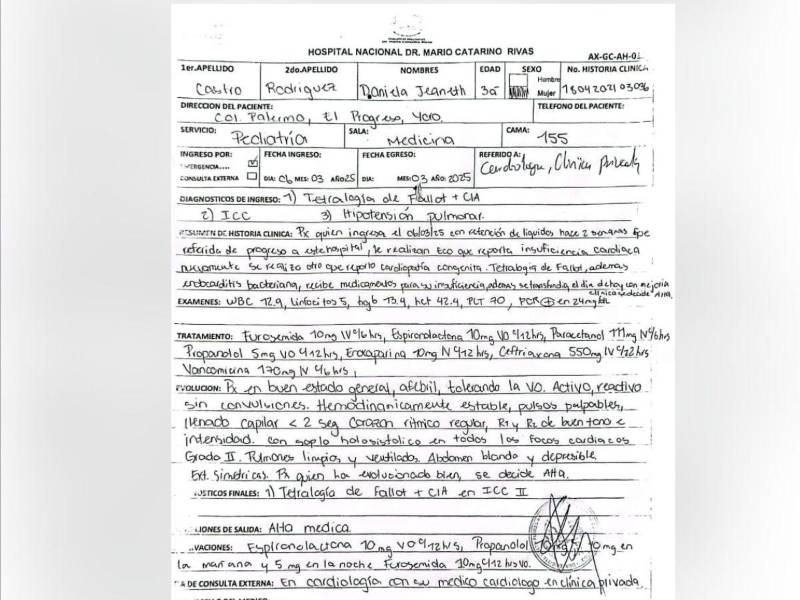 HOSPITAL NACIONAL DR. MARIO CATARINO RIVAS
AX-GC-AH-01
1er.APELLIDO 2do.APELLIDO NOMBRES EDAD SEXO No. HISTORIA CLINICA
Castro Rodriguez Daniela Jeaneth 3a Hombre Mujer 18042021 03036
DIRECCION DEL PACIENTE: TELEFONO DEL PACIENTE:
Col. Palermo, El Progreso, Yoro.
SERVICIO: Pediatría SALA: Medicina CAMA: 155
INGRESO POR: FECHA INGRESO: FECHA EGRESO: REFERIDO A: Cardiologa, Clinica privada
EMERGENCIA....
CONSULTA EXTERNA DIA: 06 MES: 03 AÑO 25 DIA: MES: 03 AÑO: 2025
DIAGNOSTICOS DE INGRESO: 1) Tetralogía de Fallot + CIA
2) ICC 3) Hipotensión pulmonar.
RESUMEN DE HISTORIA CLINICA: Px quien ingresa el 06/03/25 con retención de liquidos hace 2 semanas
referida de progreso a este hospital, le realizan Eco que reporta insuficiencia cardiaca
nuevamente se realizo otro que reporto cardiopatía congenita. Tetralogia de Fallot, ademas
endocarditis bacteriana, recibe medicamentos para su insuficiencia, ademas se transfundio, el dia de hoy con mejoria
clinica se decide Alta.
EXAMENES: WBC 12.9, Linfocitos 5, hgb 13.4, hct 42.4, PLT 70, PCR ⊕ en 24mg/dl
TRATAMIENTO: Furosemida 10mg IV c/6hrs, Espironolactona 10mg VO c/12hrs, Paracetamol 111mg IV c/6hrs
Propanolol 5mg VO c/12hrs, Enoxaparina 10mg c/12hrs, Ceftriaxona 550mg IV c/12hrs
Vancomicina 170mg IV c/6hrs,
EVOLUCION: Px en buen estado general, afebril, tolerando la VO. Activo, reactivo
sin convulsiones. Hemodinamicamente estable, pulsos palpables,
llenado capilar < 2 seg Corazon ritmico regular, R1 y R2 de buen tono e
intensidad. con soplo holosistolico en todos los focos cardiacos
Grado II. Pulmones limpios y ventilados. Abdomen blando y depresible.
Ext. simetricas. Px quien ha evolucionado bien, se decide Alta.
OSTICOS FINALES: 1) Tetralogía de Fallot + CIA en ICC II
IONES DE SALIDA: Alta medica.
VACIONES: Espironolactona 10mg VO c/12hrs, Propanolol 10mg en
la mañana y 5 mg en la noche Furosemida 10mg c/12hrs VO.
A DE CONSULTA EXTERNA: En cardiología con su medico cardiologo en clínica privada.